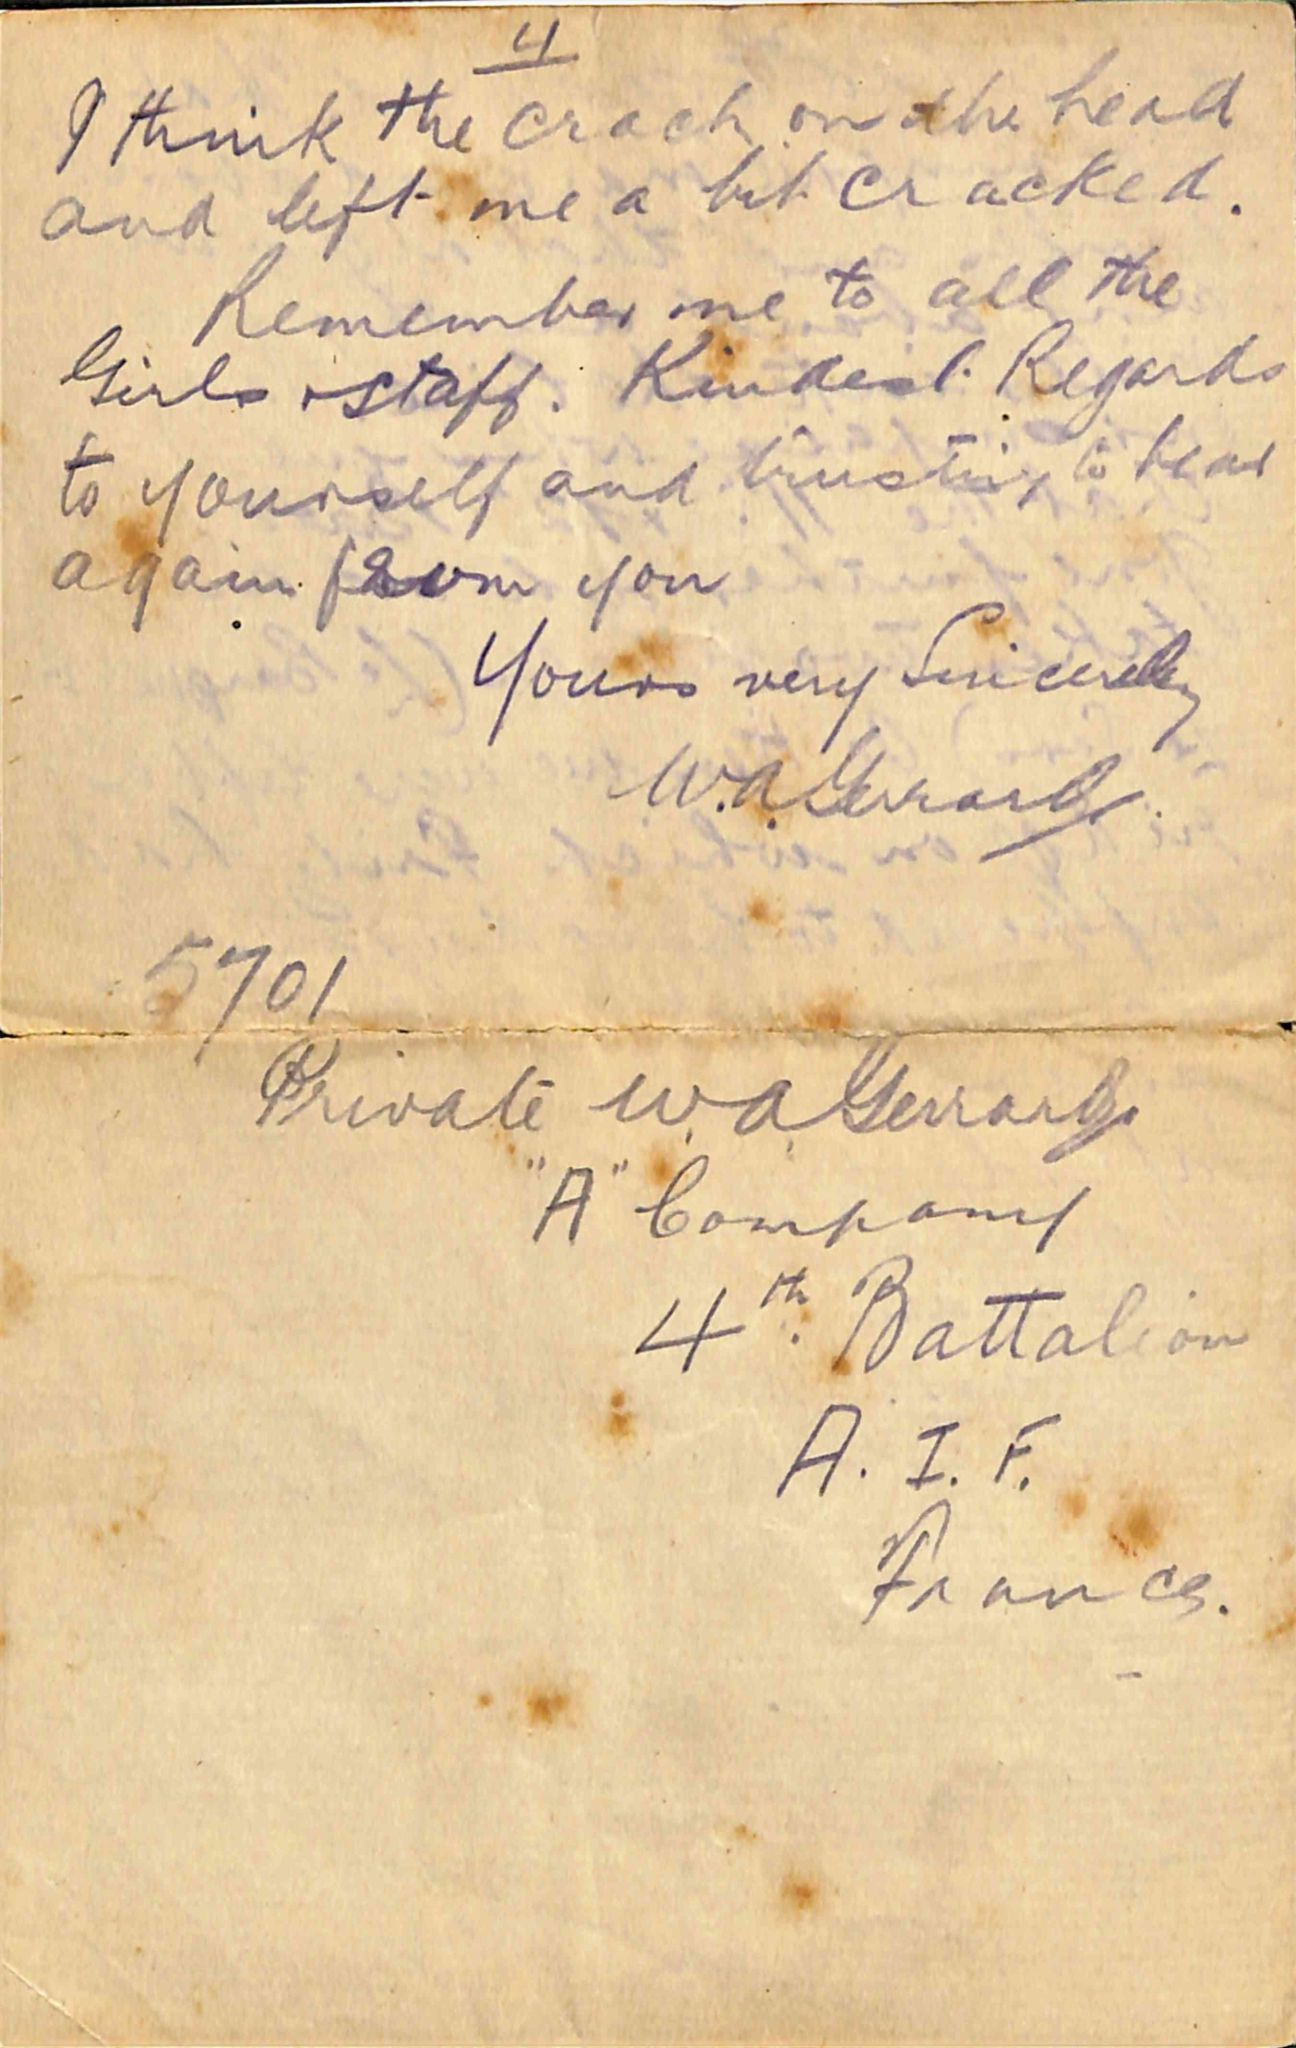 4
I think the crack on the head
and left me a bit cracked.
Remember me to all the
Girls & staff. Kindest Regards
to yourself and trusting to hear
again from you
Yours very Sincerely
W.A. Gerrard.
5701
Private W.A. Gerrard.
"A" Company
4th. Battalion
A. I. F.
France.